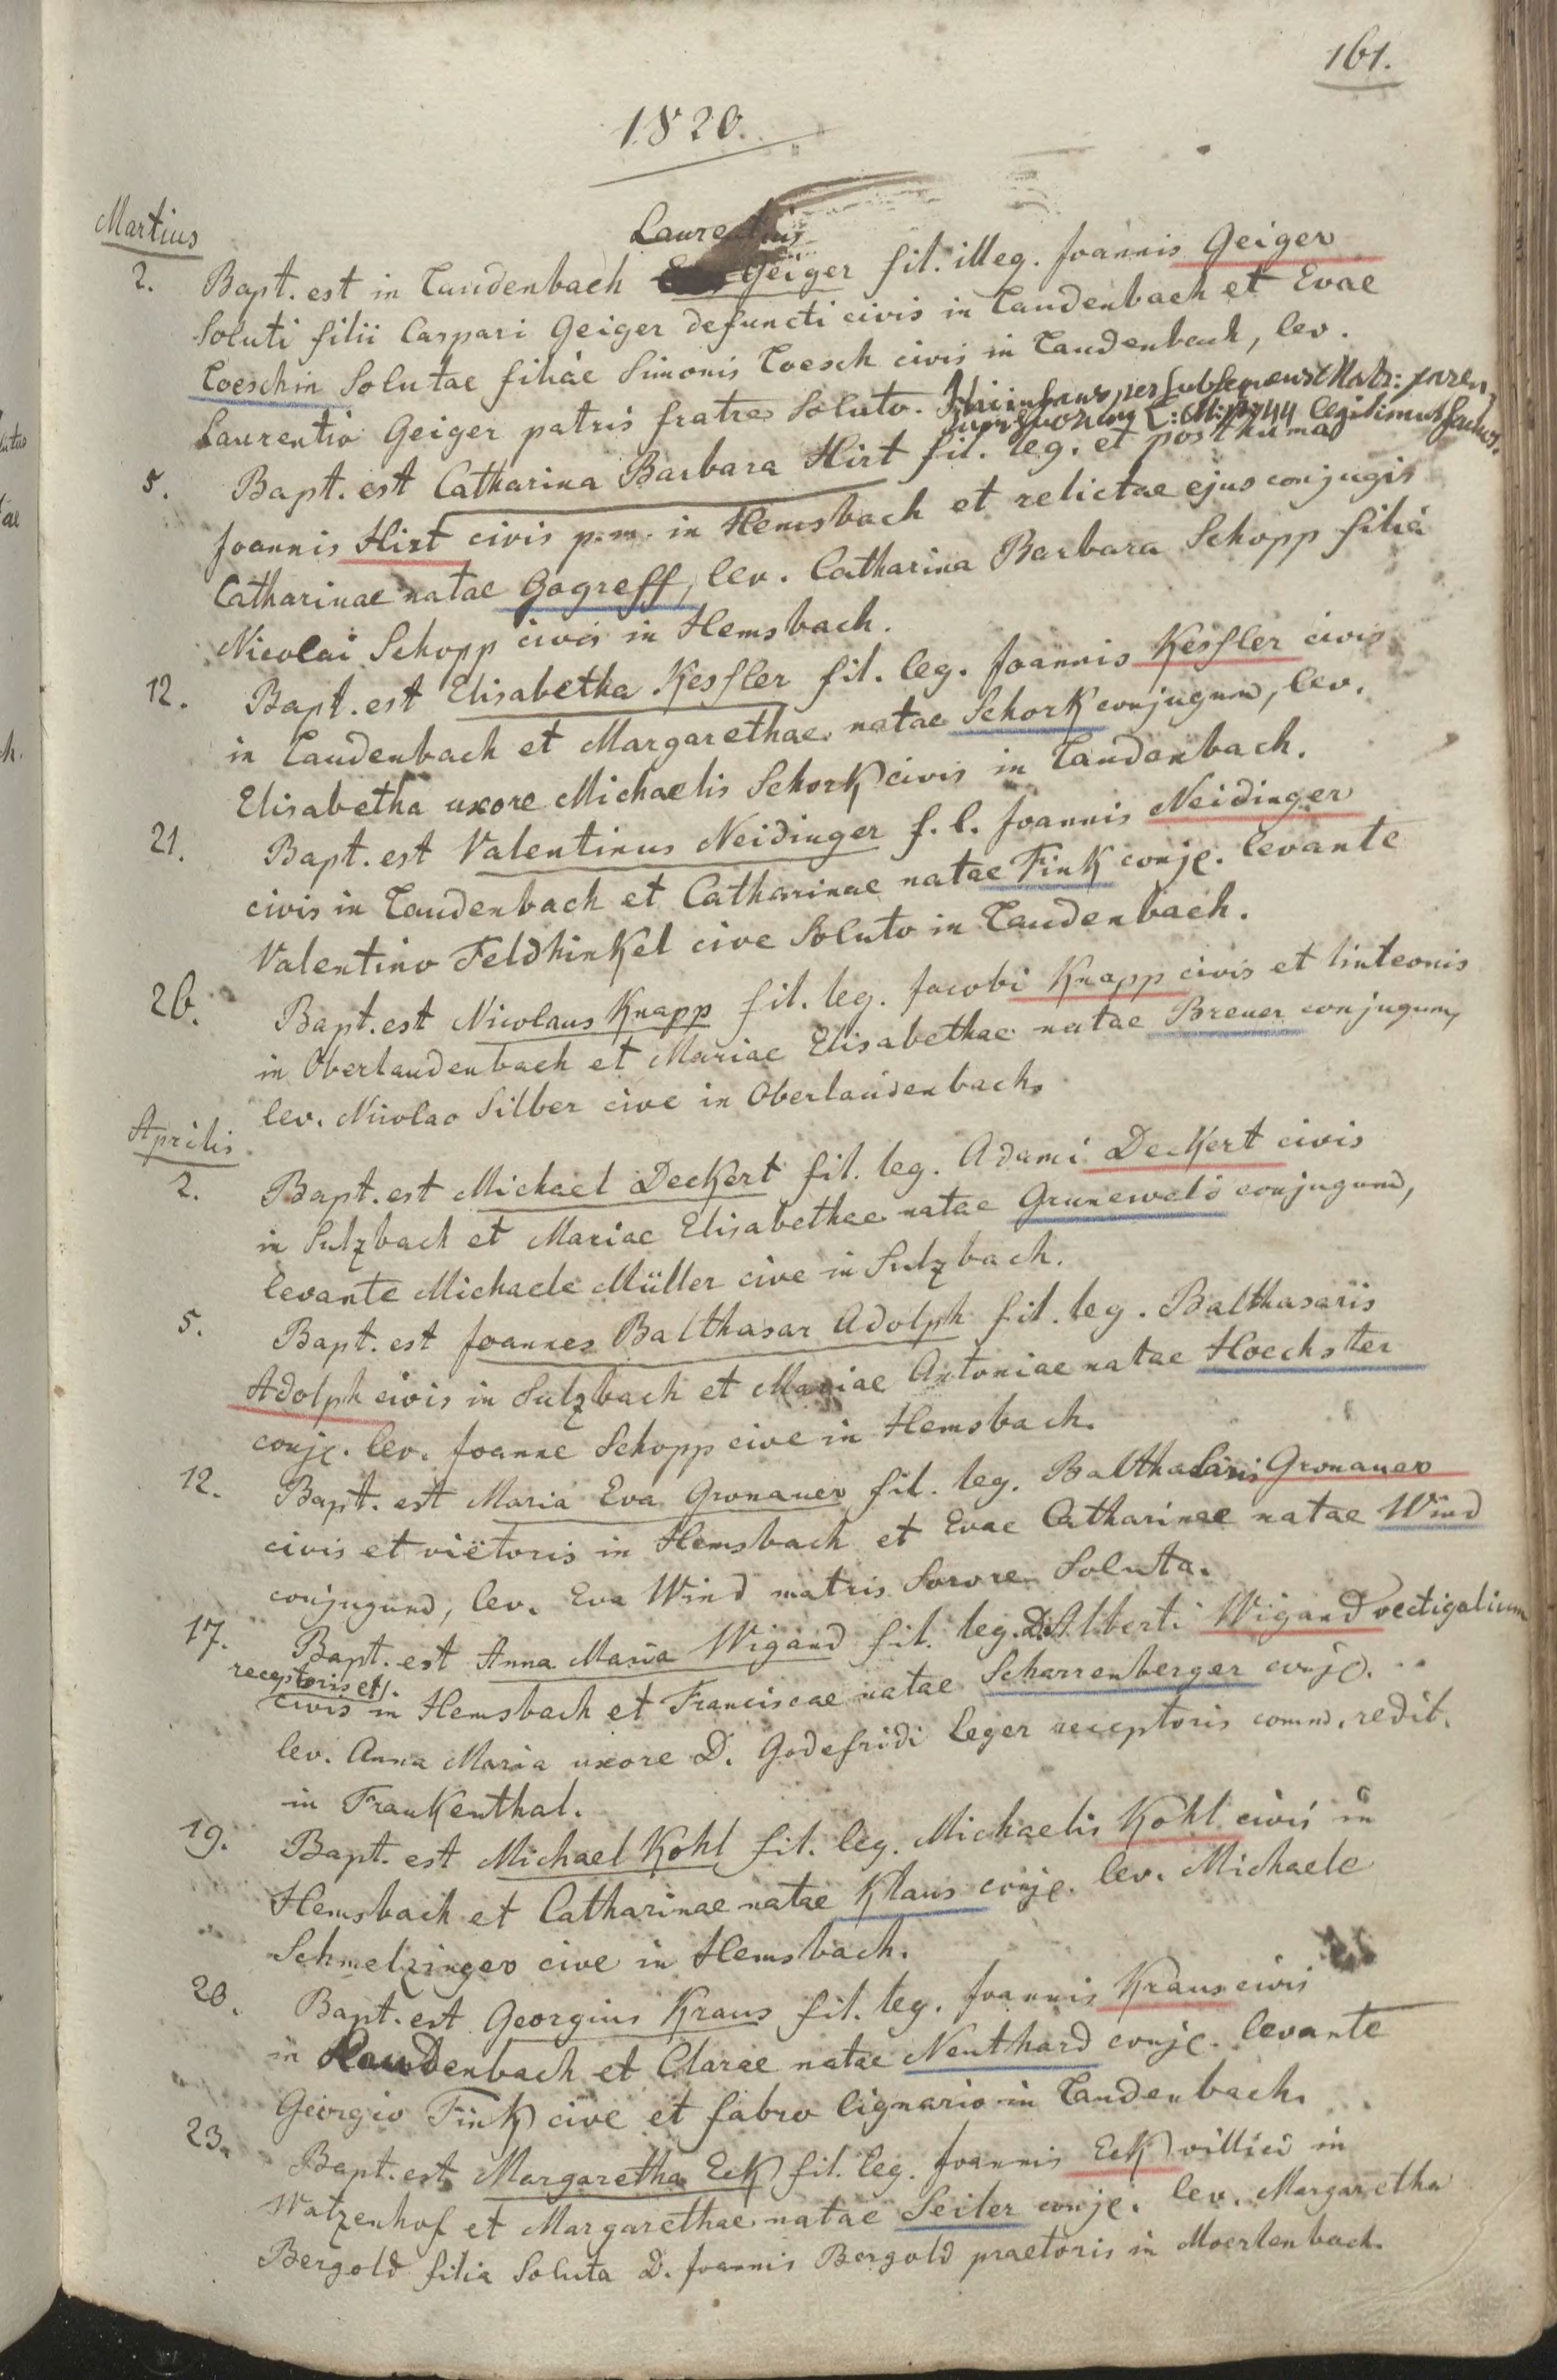 161.
1820.
Martius
Laurentius
2. Bapt. est in Laudenbach Geiger fil. illeg. Joannis Geiger
soluti filii Caspari Geiger defuncti civis in Laudenbach et Evae
Loeschin solutae filiae Simonis Loesch civis in Laudenbach, lev.
Laurentio Geiger patris fratre soluto. Hic infans per subsequens Matr:
legitimus factus.
5. Bapt. est Catharina Barbara Hirt fil. leg. et posthuma
Joannis Hirt civis p. m. in Hemsbach et relictae ejus conjugis
Catharinae natae Gogreff, lev. Catharina Barbara Schopp filia
Nicolai Schopp civis in Hemsbach.
12. Bapt. est Elisabetha Kessler fil. leg. Joannis Kessler civis
in Laudenbach et Margarethae natae Schork conjugum, lev.
Elisabetha uxore Michaelis Schork civis in Laudenbach.
21. Bapt. est Valentinus Neidinger f. l. Joannis Neidinger
civis in Laudenbach et Catharinae natae Fink conjc. levante
Valentino Feldhinkel cive soluto in Laudenbach.
26. Bapt. est Nicolaus Knapp fil. leg. Jacobi Knapp civis et linteonis
in Oberlaudenbach et Mariae Elisabethae natae Breuer conjugum,
lev. Nicolao Silber cive in Oberlaudenbach.
Aprilis
2. Bapt. est Michael Deckert fil. leg. Adami Deckert civis
in Sulzbach et Mariae Elisabethae natae Grunewald conjugum,
levante Michaele Müller cive in Sulzbach.
5. Bapt. est Joannes Balthasar Adolph fil. leg. Balthasaris
Adolph civis in Sulzbach et Mariae Antoniae natae Hoechster
conjc. lev. Joanne Schopp cive in Hemsbach.
12. Bapt. est Maria Eva Gronauer fil. leg. Balthasaris Gronauer
civis et viëtoris in Hemsbach et Evae Catharinae natae Wind
conjugum, lev. Eva Wind matris sorore soluta.
17. Bapt. est Anna Maria Wigand fil. leg. D. Alberti Wigand vectigalium
receptoris et
civis in Hemsbach et Franciscae natae Scharrenberger conjc.
lev. Anna Maria uxore D. Godefridi Leger receptoris comm. redit.
in Frankenthal.
19. Bapt. est Michael Kohl fil. leg. Michaelis Kohl civis in
Hemsbach et Catharinae natae Klaus conjc. lev. Michaele
Schmelzinger cive in Hemsbach.
20. Bapt. est Georgius Kraus fil. leg. Joannis Kraus civis
in Laudenbach et Clarae natae Neuthard conjc. levante
Georgio Fink cive et fabro lignario in Laudenbach.
23. Bapt. est Margaretha Eck fil. leg. Joannis Eck villici in
Watzenhof et Margarethae natae Seiler conjc. lev. Margaretha
Bergold filia soluta D. Joannis Bergold praetoris in Moerlenbach.